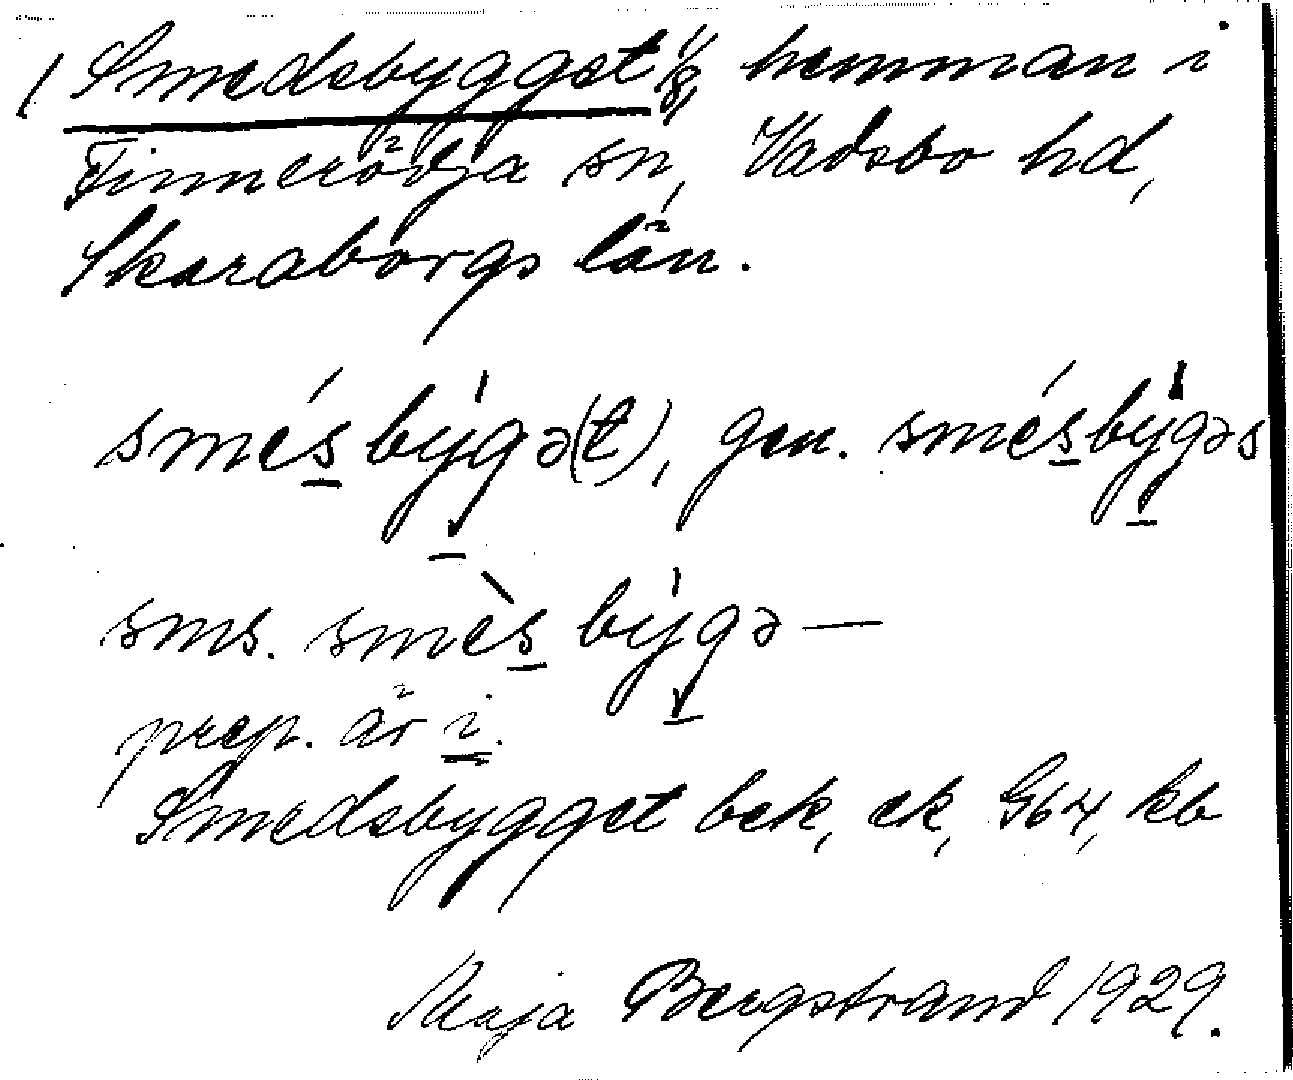 1 Smedsbygget 1/8, hemman i
Finnerödja sn, Vadsbo hd,
Skaraborgs län.
smésbýgə(t), gen. smésbýgəs
sms. smèsbýgə—
prep. är i.
Smedsbygget bek, ek, G64, kb
Maja Bergstrand 1929.